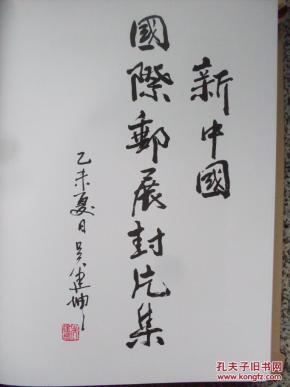 新中國
國際郵展封片集
乙未夏日吴建坤
孔夫子旧书网